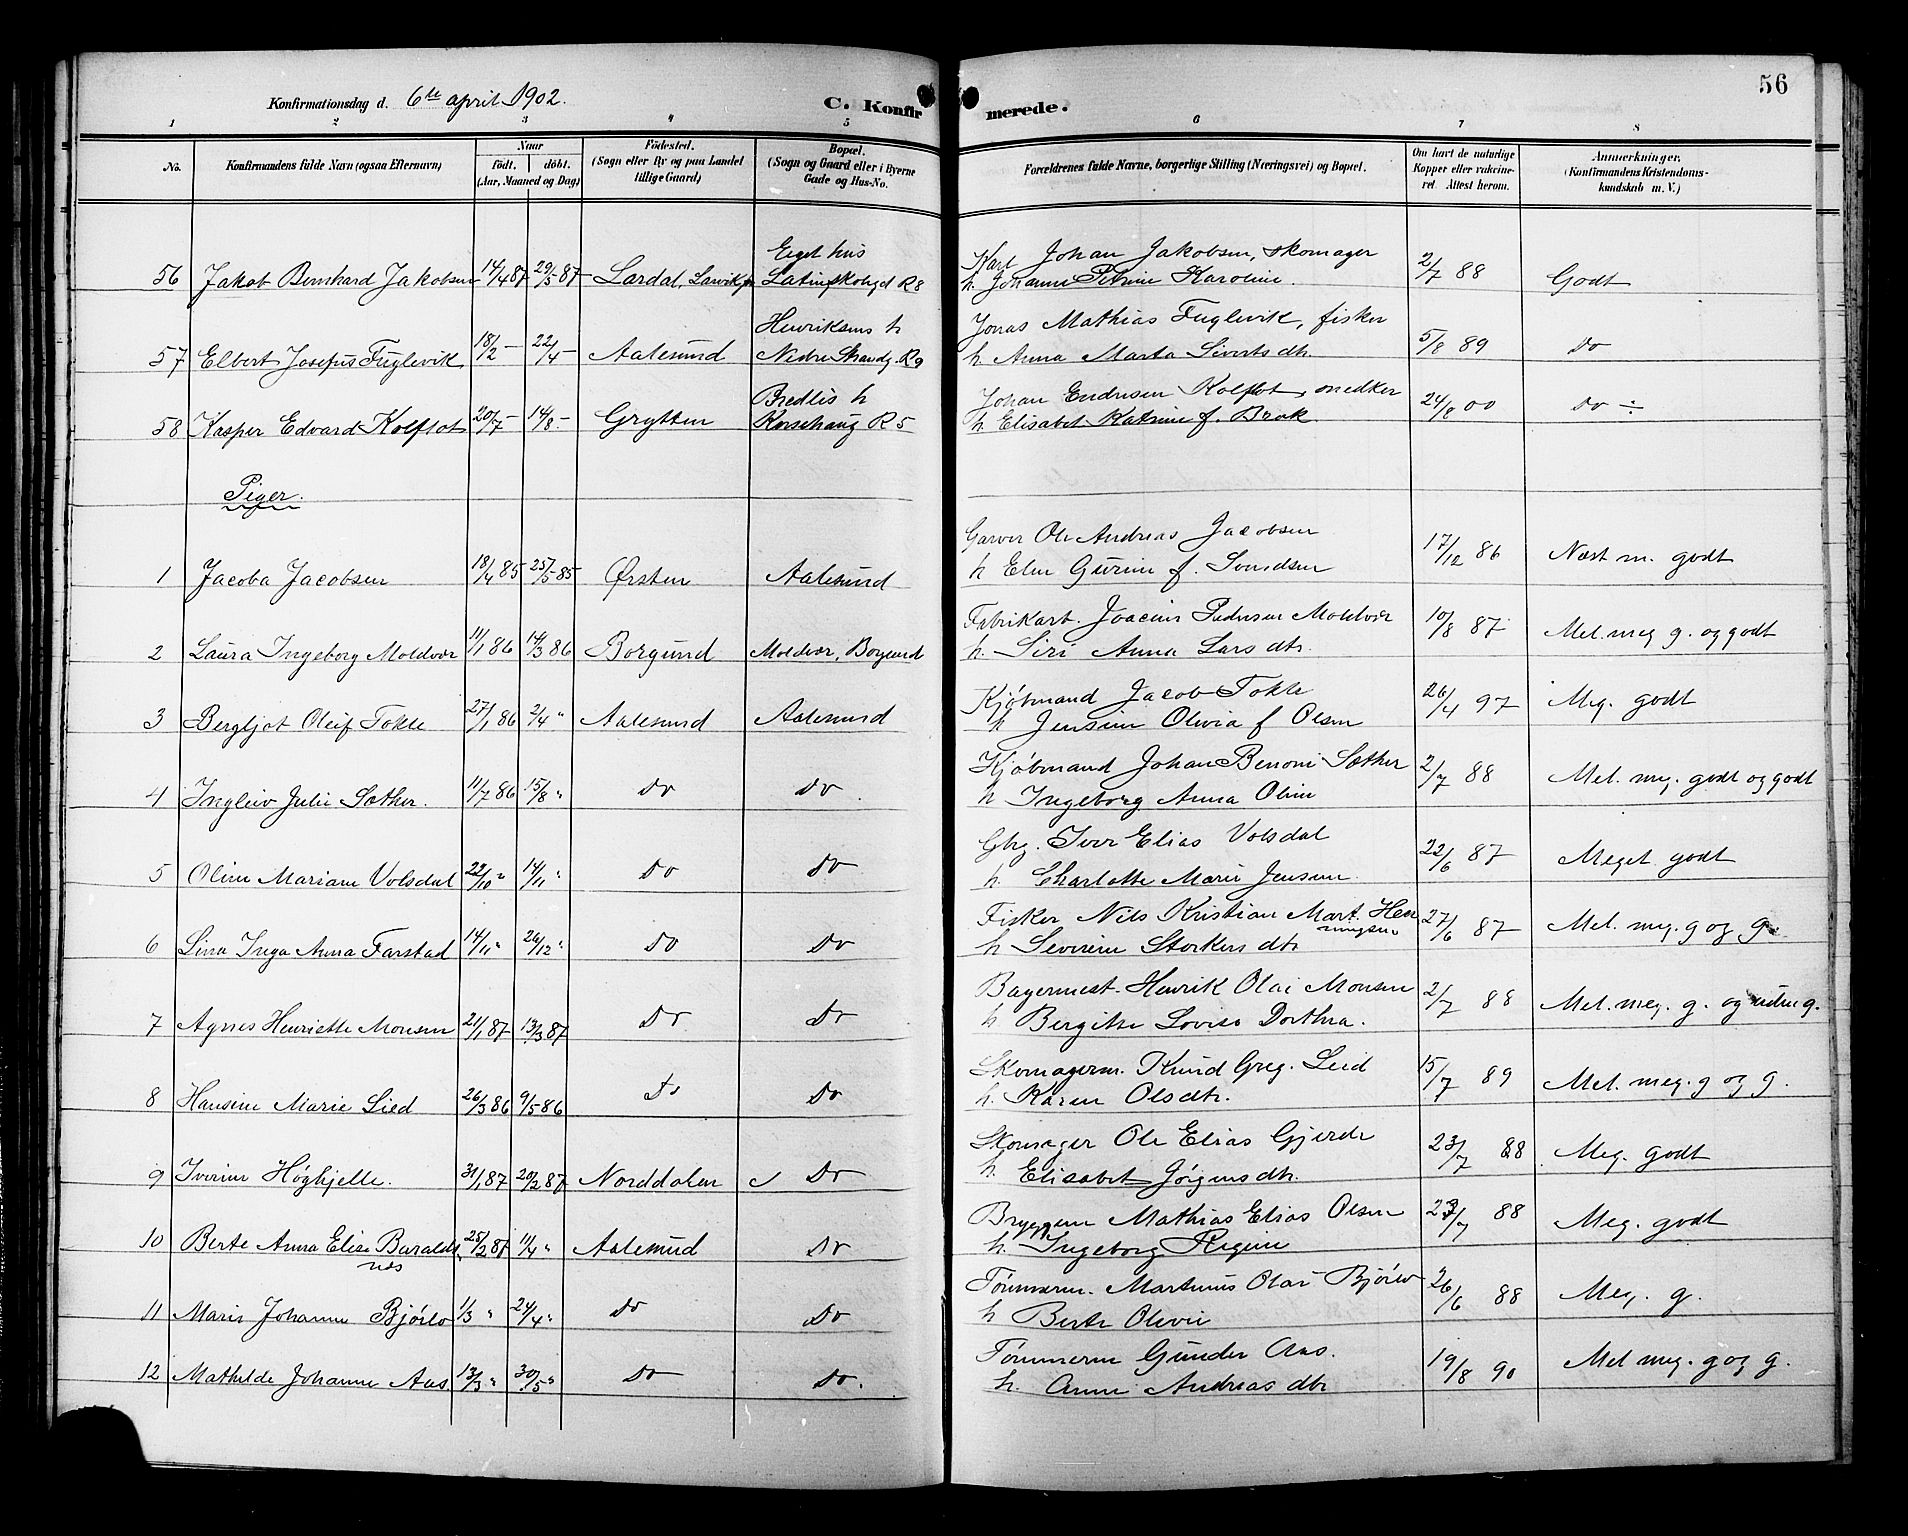 56
Konfirmationsdag d. 6te april 1902.
C. Konfirmerede.
1 2 3 4 5 6 7 8
No. | Konfirmandens fulde Navn (ogsaa Efternavn) | Naar födt. döbt. (Aar, Maaned og Dag) | Födested. (Sogn eller By og paa Landet tillige Gaard) | Bopæl. (Sogn og Gaard eller i Byerne Gade og Hus-No. | Forældrenes fulde Navne, borgerlige Stilling (Næringsvei) og Bopæl. | Om havt de naturlige Kopper eller vakcineret. Attest herom. | Anmerkninger. (Konfirmandens Kristendomskundskab m. V.)
Eiget hus Karl Johan Jakobsen, skomager
56 Jakob Bernhard Jakobsen 14/4 87 29/5 87 Lardal, Larvik Latinskolegd R8 h. Johanne Petrine Karoline. 2/7 88 Godt
Henriksens h Jonas Mathias Fuglevik, fisker
57 Elbert Josefus Fuglevik 18/2 – 22/4 – Aalesund Nedre Strandg. R9 h. Anna Marta Siverts dtr. 5/8 89 Do
Bredlis h Johan Endresen Kolflot, snedker
58 Kasper Edvard Kolflot 20/7 – 14/8 – Grytten Korsehaug R5 h. Elisabet Katrine f. Brak 24/8 00 Do ÷
Piger.
Garver Ole Andreas Jacobsen
1 Jacoba Jacobsen 18/4 85 25/5 85 Ørsten Aalesund h Elen Gurine f. 17/12 86 Næst m. godt
Fabrikarb. Joacim Pedersen Moldvær
2 Laura Ingeborg Moldvær 11/1 86 14/3 86 Borgund Moldvær, Borgund h. Siri Anna Lars dtr. 10/8 87 Mel. meg g. og godt
Kjøbmand Jacob Tokle
3 Bergljot Oleif Tokle 27/1 86 2/4 " Aalesund Aalesund h Jensine Olivia f Olsen 26/4 97 Meg. godt
Kjøbmand Johan Benoni Sæther
4 Ingleiv Julie Sæther. 11/7 86 15/8 " Do Do. h Ingeborg Anna Oline 2/7 88 Mel. meg. godt og godt
Gbr. Iver Elias Volsdal
5 Oline Mariane Volsdal 22/10 " 14/11 " Do Do h. Charlotte Marie Jensen 22/6 87 Meget godt
Fisker Nils Kristian Mart. Henningsen
6 Lina Inga Anna Farstad 14/11 " 26/12 " Do Do h Severine Storkers dtr 27/6 87 Mel. meg. g og g.
Bagermest. Henrik Olai Monsen
7 Agnes Henriette Monsen 21/1 87 13/3 87 Do Do h. Bergitte Lovise Dorthea. 2/7 88 Mel. meg. g. og g.
Skomagerm. Knud Greg. Lied
8 Hansine Marie Lied 26/3 86 9/5 86 Do Do h. Karen Olsdtr. 15/7 89 Mel. meg. g og g.
Skomager Ole Elias Gjerde
9 Iverine Høghjelle. 31/1 87 20/2 87 Norddalen Do h Elisabet Jörgensdtr. 23/7 88 Meg. godt
Bryggem Mathias Elias Olsen
10 Berte Anna Elise Baraldsnes 25/2 87 11/4 " Aalesund Do h. Ingeborg Regine 23/7 88 Meg. godt
Tömmerm. Martinus Olai Bjórlo
11 Marie Johanne Bjórlo 1/3 " 24/4 " Do Do h Berte Olivie 26/6 88 Meg. g.
Tömmerm Gunder Aas.
12 Mathilde Johanne Aas 13/3 " 30/5 " Do Do. h. Anne Andreas dtr 19/8 90 Mel meg. g og g.